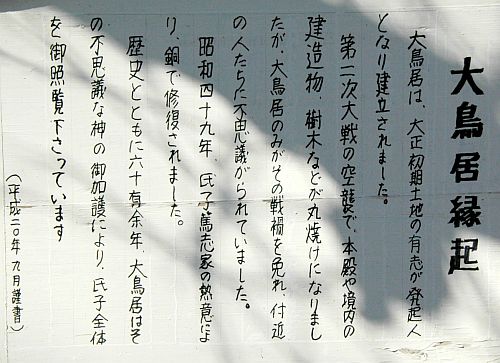 大鳥居縁起
大鳥居は、大正初期土地の有志が発起人
となり建立されました。
第二次大戦の空襲で、本殿や境内の
建造物、樹木などが丸焼けになりまし
たが、大鳥居のみがその戦禍を免れ、付近
の人たちに不思議がられていました。
昭和四十九年、氏子篤志家の熱意によ
り、銅で修復されました。
歴史とともに六十有余年、大鳥居はそ
の不思議な神の御加護により、氏子全体
を御照覧下さっています
(平成二〇年九月謹書)